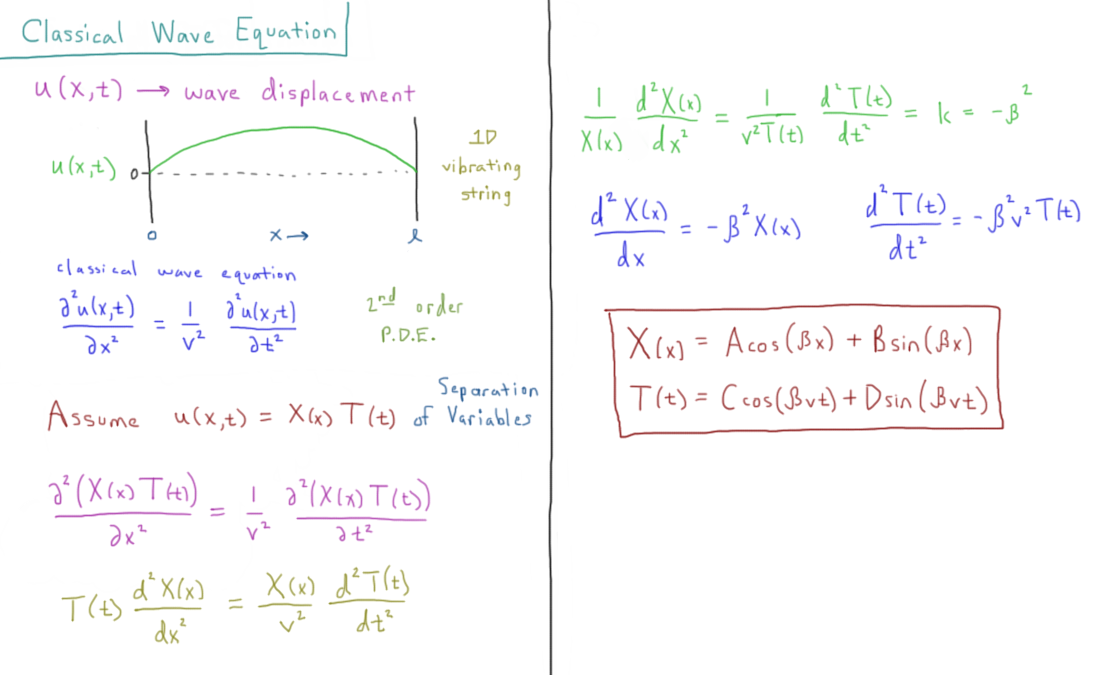 Classical Wave Equation
u(x,t) → wave displacement
u(x,t) 0
1D
vibrating
string
0 x→ l
classical wave equation
∂²u(x,t)/∂x² = 1/v² ∂²u(x,t)/∂t²
2nd order
P.D.E.
Assume u(x,t) = X(x) T(t)
Separation
of Variables
∂²(X(x)T(t))/∂x² = 1/v² ∂²(X(x)T(t))/∂t²
T(t) d²X(x)/dx² = X(x)/v² d²T(t)/dt²
1/X(x) d²X(x)/dx² = 1/v²T(t) d²T(t)/dt² = k = -β²
d²X(x)/dx = -β²X(x)
d²T(t)/dt² = -β²v²T(t)
X(x) = Acos(βx) + Bsin(βx)
T(t) = Ccos(βvt) + Dsin(βvt)